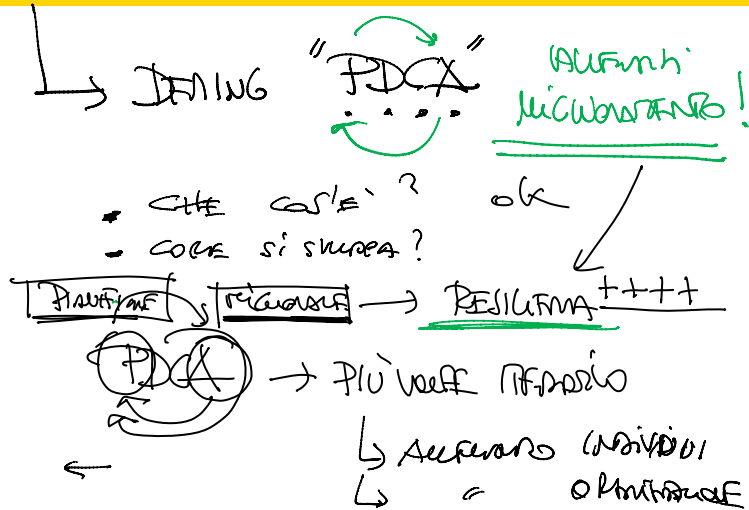 DEMING "PDCA"
ALLENATI
MIGLIORAMENTO!
- CHE COS'E'? OK
- COME SI SVILUPPA?
PIANIFICARE MIGLIORARE → RESILIENZA ++++
PDCA → PIÙ VOLTE ITERARLO
↳ ALLENARO INDIVIDUI
↳ " ORGANIZZAZIONE